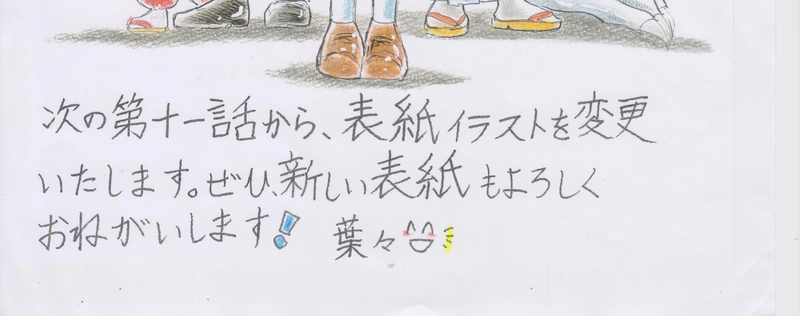 次の第十一話から、表紙イラストを変更
いたします。ぜひ、新しい表紙もよろしく
おねがいします! 葉々